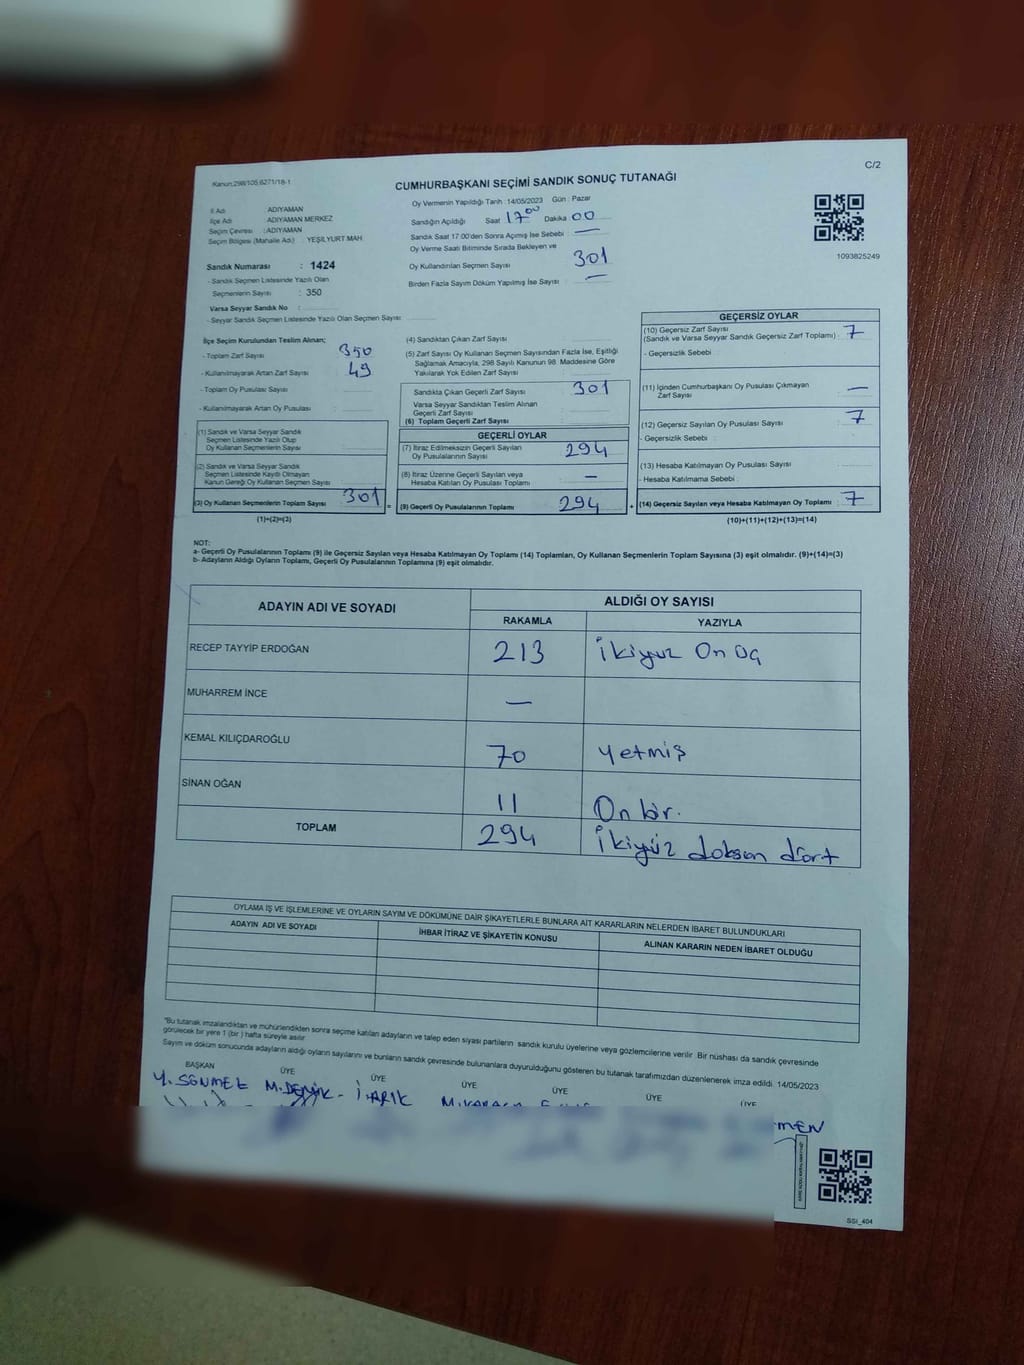 Kanun:298/105,6271/18-1
C/2
CUMHURBAŞKANI SEÇİMİ SANDIK SONUÇ TUTANAĞI
İl Adı ADIYAMAN
İlçe Adı ADIYAMAN MERKEZ
Seçim Çevresi :ADIYAMAN
Seçim Bölgesi (Mahalle Adı) : YEŞİLYURT MAH
Sandık Numarası : 1424
- Sandık Seçmen Listesinde Yazılı Olan
Seçmenlerin Sayısı : 350
Varsa Seyyar Sandık No :
- Seyyar Sandık Seçmen Listesinde Yazılı Olan Seçmen Sayısı:
Oy Vermenin Yapıldığı Tarih :14/05/2023 Gün : Pazar
Sandığın Açıldığı Saat 17 00 Dakika 00
Sandık Saat 17:00'den Sonra Açımış İse Sebebi : —
Oy Verme Saati Bitiminde Sırada Bekleyen ve
Oy Kullandırılan Seçmen Sayısı 301
Birden Fazla Sayım Döküm Yapılmış İse Sayısı : —
1093825249
İlçe Seçim Kurulundan Teslim Alınan;
- Toplam Zarf Sayısı : 350
- Kullanılmayarak Artan Zarf Sayısı : 49
- Toplam Oy Pusulası Sayısı :
- Kullanılmayarak Artan Oy Pusulası :
(1) Sandık ve Varsa Seyyar Sandık
Seçmen Listesinde Yazılı Olup
Oy Kullanan Seçmenlerin Sayısı
(2) Sandık ve Varsa Seyyar Sandık
Seçmen Listesinde Kayıtlı Olmayan
Kanun Gereği Oy Kullanan Seçmen Sayısı
(3) Oy Kullanan Seçmenlerin Toplam Sayısı 301
(1)+(2)=(3)
(4) Sandıktan Çıkan Zarf Sayısı :
(5) Zarf Sayısı Oy Kullanan Seçmen Sayısından Fazla İse, Eşitliği
Sağlamak Amacıyla; 298 Sayılı Kanunun 98. Maddesine Göre
Yakılarak Yok Edilen Zarf Sayısı :
Sandıkta Çıkan Geçerli Zarf Sayısı : 301
Varsa Seyyar Sandıktan Teslim Alınan
Geçerli Zarf Sayısı
(6) Toplam Geçerli Zarf Sayısı
GEÇERLİ OYLAR
(7) İtiraz Edilmeksizin Geçerli Sayılan
Oy Pusulalarının Sayısı : 294
(8) İtiraz Üzerine Geçerli Sayılan veya
Hesaba Katılan Oy Pusulası Toplamı : —
= (9) Geçerli Oy Pusulalarının Toplamı 294
GEÇERSİZ OYLAR
(10) Geçersiz Zarf Sayısı
(Sandık ve Varsa Seyyar Sandık Geçersiz Zarf Toplamı) : 7
- Geçersizlik Sebebi :
(11) İçinden Cumhurbaşkanı Oy Pusulası Çıkmayan
Zarf Sayısı : —
(12) Geçersiz Sayılan Oy Pusulası Sayısı : 7
- Geçersizlik Sebebi :
(13) Hesaba Katılmayan Oy Pusulası Sayısı :
- Hesaba Katılmama Sebebi :
+ (14) Geçersiz Sayılan veya Hesaba Katılmayan Oy Toplamı : 7
(10)+(11)+(12)+(13)=(14)
NOT:
a- Geçerli Oy Pusulalarının Toplamı (9) ile Geçersiz Sayılan veya Hesaba Katılmayan Oy Toplamı (14) Toplamları, Oy Kullanan Seçmenlerin Toplam Sayısına (3) eşit olmalıdır. (9)+(14)=(3)
b- Adayların Aldığı Oyların Toplamı, Geçerli Oy Pusulalarının Toplamına (9) eşit olmalıdır.
ADAYIN ADI VE SOYADI
ALDIĞI OY SAYISI
RAKAMLA YAZIYLA
RECEP TAYYİP ERDOĞAN 213 İkiyüz On Üç
MUHARREM İNCE —
KEMAL KILIÇDAROĞLU 70 Yetmiş
SİNAN OĞAN 11 On bir.
TOPLAM 294 İkiyüz doksan dört
OYLAMA İŞ VE İŞLEMLERİNE VE OYLARIN SAYIM VE DÖKÜMÜNE DAİR ŞİKAYETLERLE BUNLARA AİT KARARLARIN NELERDEN İBARET BULUNDUKLARI
ADAYIN ADI VE SOYADI İHBAR İTİRAZ VE ŞİKAYETİN KONUSU ALINAN KARARIN NEDEN İBARET OLDUĞU
"Bu tutanak imzalandıktan ve mühürlendikten sonra seçime katılan adayların ve talep eden siyasi partilerin sandık kurulu üyelerine veya gözlemcilerine verilir. Bir nüshası da sandık çevresinde
görülecek bir yere 1 (bir ) hafta süreyle asılır
Sayım ve döküm sonucunda adayların aldığı oyların sayılarını ve bunların sandık çevresinde bulunanlara duyurulduğunu gösteren bu tutanak tarafımızdan düzenlenerek imza edildi. 14/05/2023
BAŞKAN ÜYE ÜYE ÜYE ÜYE ÜYE ÜYE
Y. SÖNMEZ M. DEMİK İ. ARIK
MEN
SSI_404